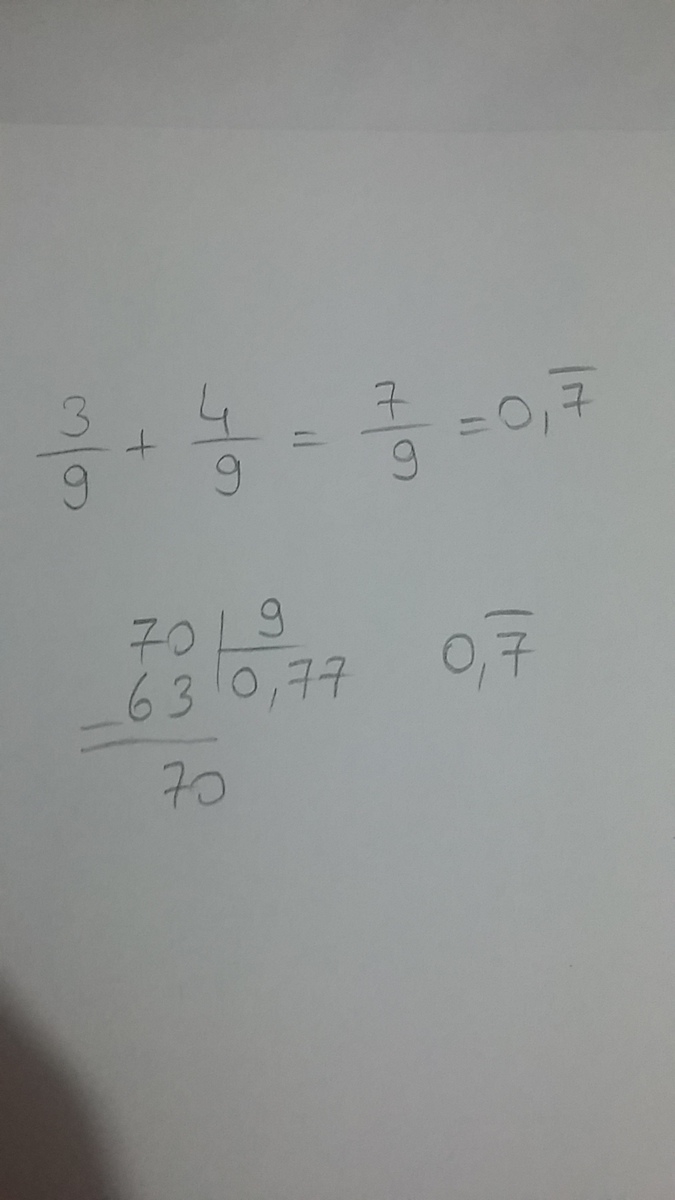 3/9 + 4/9 = 7/9 = 0,7̅
70 | 9
- 63 | 0,77 0,7̅
70